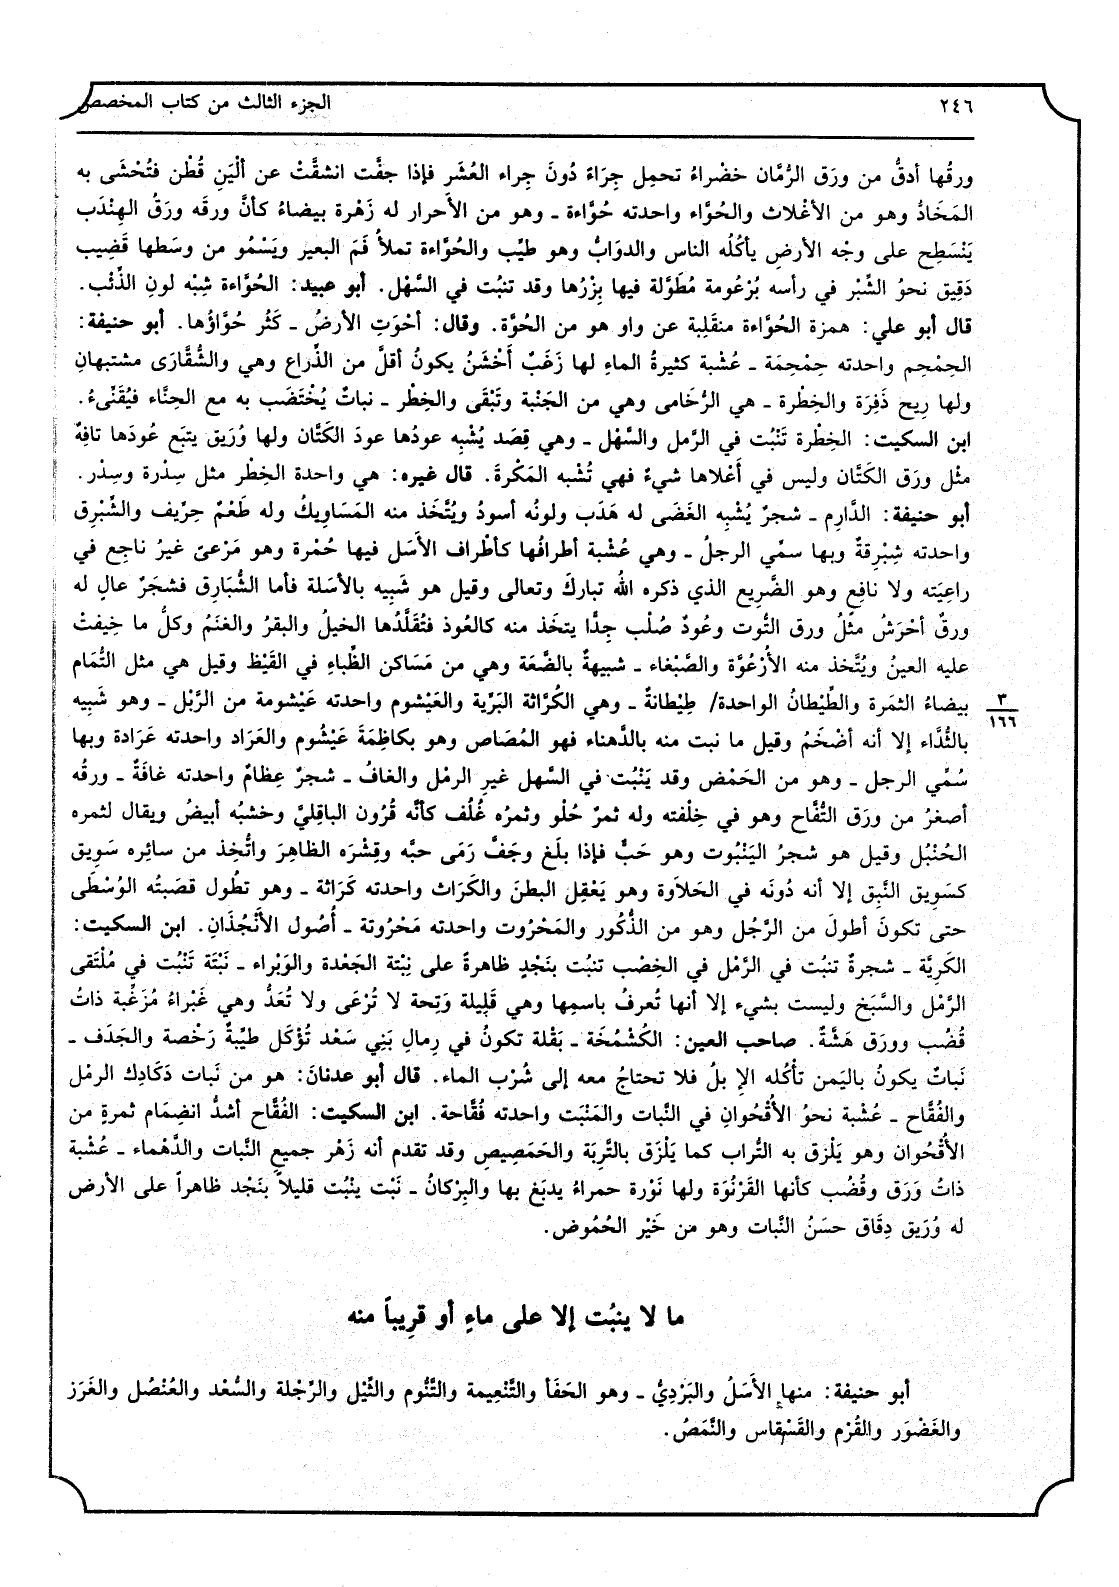 ٢٤٦
الجزء الثالث من كتاب المخصص
ورقُها أدقُّ من ورَق الرُّمَّان خضْراءُ تحمِل جِرَاءً دُونَ جِراء العُشَر فإذا جفَّت انشقَّتْ عن ألْيَنِ قُطْن فتُحْشَى به
المَخَادُّ وهو من الأغْلاث والحُوَّاء واحدته حُوَّاءة ـ وهو من الأحرار له زَهْرة بيضاءُ كأنَّ ورقَه ورَقُ الهِنْدَب
يَنْسَطِح على وجْه الأرضِ يأكُلُه الناس والدوابُّ وهو طيِّب والحُوَّاءة تملأُ فَمَ البعير ويَسْمُو من وسَطها قَضِيب
دَقِيق نحوُ الشِّبْر في رأسه بُرْعُومة مُطَوَّلة فيها بِزْرُها وقد تنبُت في السَّهْل. أبو عبيد: الحُوَّاءة شِبْه لونِ الذِّئْب.
قال أبو علي: همزة الحُوَّاءة منقَلِبة عن واو هو من الحُوَّة. وقال: أحْوَتِ الأرضُ ـ كَثُر حُوَّاؤُها. أبو حنيفة:
الحِمْحِم واحدته حِمْحِمَة ـ عُشْبة كثيرةُ الماءِ لها زَغَبٌ أخْشَنُ يكونُ أقلَّ من الذِّراع وهي والشُّقَّارَى مشتبهانِ
ولها رِيح ذَفِرَة والخِطْرة ـ هي الرُّخَامى وهي من الجَنْبة وتَبْقَى والخِطْر ـ نباتٌ يُخْتَضَب به مع الحِنَّاء فيُقَنِّىءُ.
ابن السكيت: الخِطْرة تَنْبُت في الرَّمل والسَّهْل ـ وهي قِصَد يُشْبِه عودُها عودَ الكَتَّان ولها وُرَيق يتبَع عُودَها تافِهٌ
مثْل ورَق الكَتَّان وليس في أعْلاها شيءٌ فهي تُشْبه المَكْرةَ. قال غيره: هي واحدة الخِطْر مثل سِدْرة وسِدْر.
أبو حنيفة: الدَّارِم ـ شجرٌ يُشْبِه الغَضَى له هَدَب ولونُه أسودُ ويُتَّخَذ منه المَسَاوِيكُ وله طَعْم حِرِّيف والشِّبْرِق
واحدته شِبْرِقةٌ وبها سمِّي الرجلُ ـ وهي عُشْبة أطرافُها كأطْراف الأَسَل فيها حُمْرة وهو مَرْعىً غيرُ ناجِع في
راعِيَته ولا نافِع وهو الضَّرِيع الذي ذكره اللهُ تباركَ وتعالى وقيل هو شَبِيه بالأسَلة فأما الشُّبَارِق فشجَرٌ عالٍ له
ورقٌ أحْرَشُ مثْلُ ورق التُّوت وعُودٌ صُلْب جِدًّا يتخَذ منه كالعُوذ فتُقَلَّدُها الخيلُ والبقرُ والغنَمُ وكلُّ ما خِيفتْ
عليه العينُ ويُتَّخذ منه الأَزْعُوَّة والصَّبْغاء ـ شبيهةٌ بالضَّعَة وهي من مَسَاكن الظِّباءِ في القَيْظ وقيل هي مثل الثُّمَام
بيضاءُ الثمَرة والطِّيْطانُ الواحدة/ طِيْطانةٌ ـ وهي الكُرَّاثة البَرِّية والعَيْشوم واحدته عَيْشومة من الرَّبْل ـ وهو شَبِيه
٣
١٦٦
بالثُّدَّاء إلا أنه أضْخَمُ وقيل ما نبت منه بالدَّهناء فهو المُصَاص وهو بكاظِمَةَ عَيْشُوم والعَرَاد واحدته عَرَادة وبها
سُمِّي الرجل ـ وهو من الحَمْض وقد يَنْبُت في السَّهل غيرِ الرمْل والغافُ ـ شجرٌ عِظامٌ واحدته غافَةٌ ـ ورقُه
أصغرُ من ورَق التُّفَّاح وهو في خِلْفته وله ثمرٌ حُلْو وثمرُه غُلُف كأنَّه قُرُون الباقِليَّ وخشَبُه أبيضُ ويقال لثمره
الحُنْبُل وقيل هو شجرُ اليَنْبُوت وهو حَبٌّ فإذا بلَغ وجَفَّ رَمَى حبَّه وقِشْرَه الظاهِرَ واتُّخِذ من سائِره سَوِيق
كسَوِيق النَّبِق إلا أنه دُونَه في الحَلاَوة وهو يَعْقِل البطنَ والكَرَاث واحدته كَرَاثة ـ وهو تطُول قصَبتُه الوُسْطَى
حتى تكونَ أطولَ من الرَّجُل وهو من الذُّكُور والمَحْرُوت واحدته مَحْرُوتة ـ أُصُول الأَنْجُذَانِ. ابن السكيت:
الكَرِيَّة ـ شجرةٌ تنبُت في الرَّمْل في الخِصْب تنبُت بنَجْدٍ ظاهرةً على نِبْتة الجَعْدة والوَبْراء ـ نَبْتَة تَنْبُت في مُلْتَقى
الرَّمْل والسَّبَخ وليست بشيء إلا أنها تُعرفُ باسمِها وهي قَلِيلة وَتِحة لا تُرْعَى ولا تُعَدُّ وهي غَبْراءُ مُزَغِّبة ذاتُ
قُضُب وورَق هَشَّةٌ. صاحب العين: الكُشْمُخَة ـ بَقْلة تكونُ في رِمالِ بَنِي سَعْد تُؤْكَل طيِّبةٌ رَخْصة والجَدَف ـ
نَباتٌ يكونُ باليَمن تأْكُله الإِ بلُ فلا تحتاجُ معه إلى شُرْب الماء. قال أبو عدنان: هو من نَبات دَكَادِك الرمْل
والفُقَّاح ـ عُشْبة نحوُ الأُقْحُوان في النَّبات والمَنْبَت واحدته فُقَّاحة. ابن السكيت: الفُقَّاح أشدُّ انضِمام ثمرةٍ من
الأُقْحُوان وهو يَلْزَق به التُّراب كما يَلْزَق بالتَّرِبَة والحَمَصِيصِ وقد تقدم أنه زَهْر جميع النَّبات والدَّهْماء ـ عُشْبة
ذاتُ وَرَق وقُضُب كأنها القَرْنُوَة ولها نَوْرة حمراءُ يدبَغ بها والبِرْكانُ ـ نَبْت ينبُت قليلاً بنَجْد ظاهراً على الأرض
له وُرَيق دِقَاق حسَنُ النَّبات وهو من خَيْر الحُمُوض.
ما لا ينبُت إلا على ماءٍ أو قرِيباً منه
أبو حنيفة: منها الأَسَلُ والبَرْدِيُّ ـ وهو الحَفَأ والتَّنْعِيمة والتَّنُّوم والثِّيْل والرِّجْلة والسُّعْد والعُنْصُل والغَرَز
والغَضْوَر والقُرْم والقَسْقاس والنَّمَصُ.